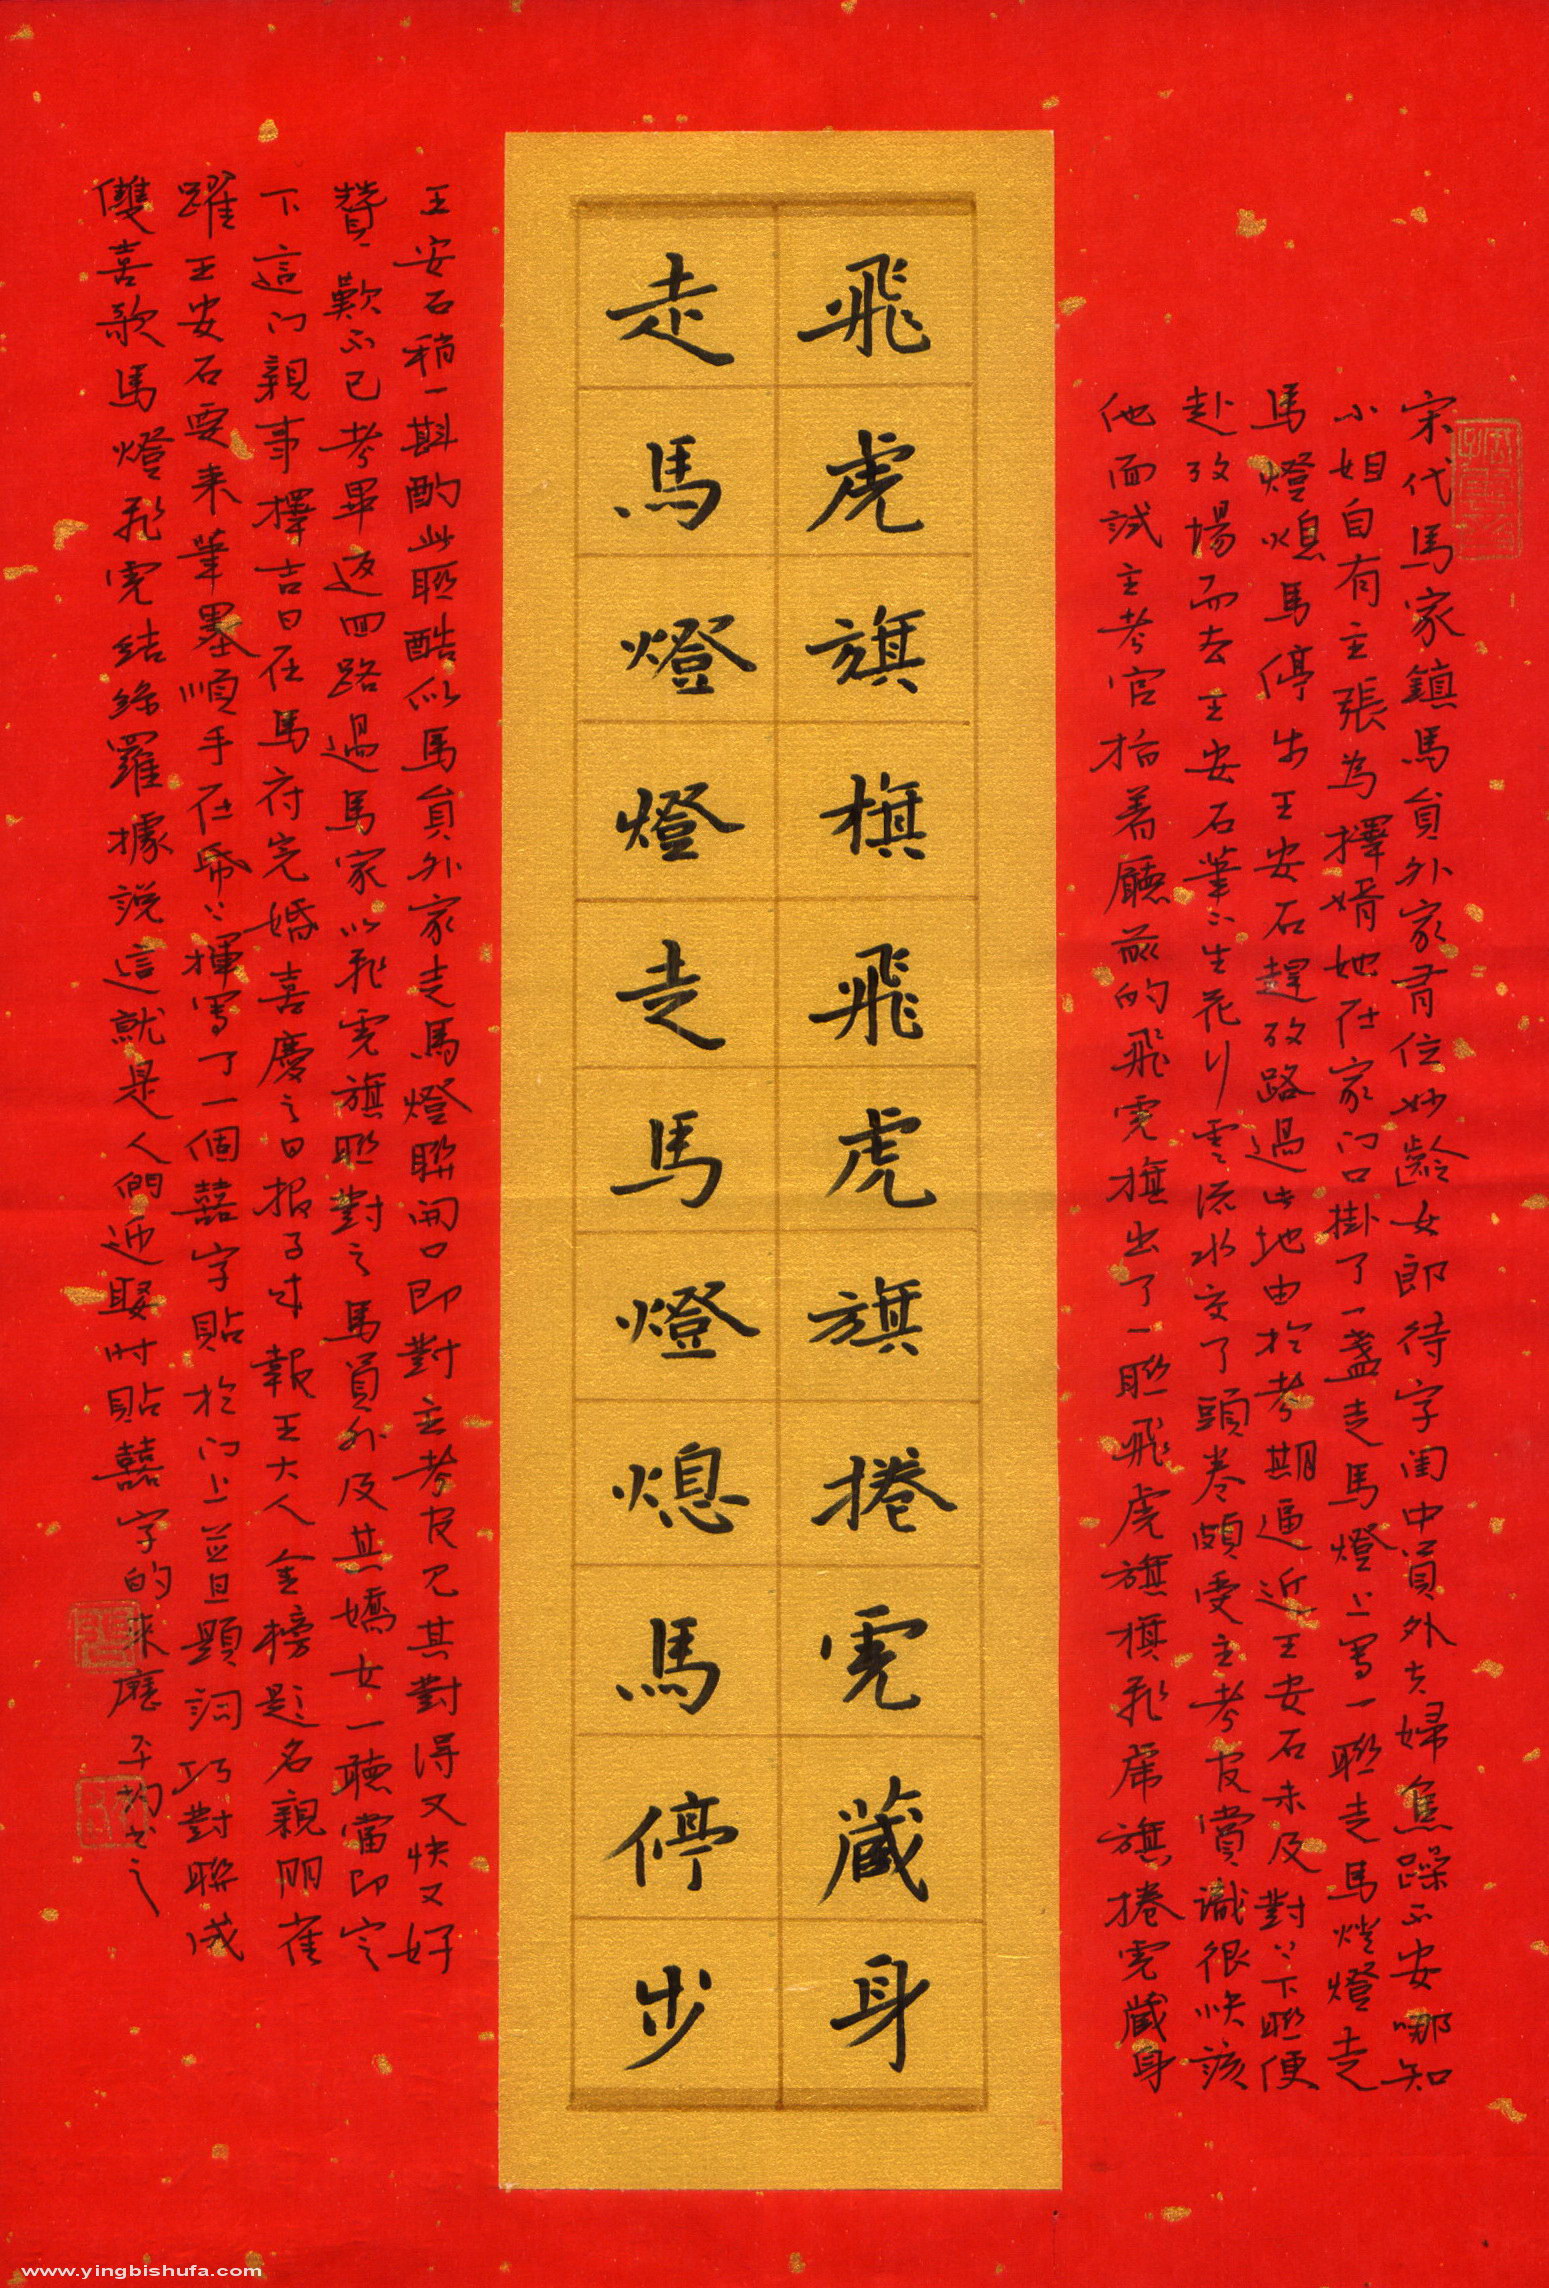 宋代馬家鎮馬員外家有位妙齡女郎待字閨中員外夫婦焦躁不安哪知
小姐自有主張為擇婿她在家门口掛了一盞走馬燈上寫一聯走馬燈燈走
馬燈熄馬停步王安石趕攷路過此地由於考期逼近王安石未及對上下聯便
赴攷場而去王安石筆下生花行雲流水交了頭卷頗受主考官賞識很快該
他面試主考官指着廳前的飛虎旗出了一聯飛虎旗旗飛虎旗捲虎藏身
飛虎旗旗飛虎旗捲虎藏身
走馬燈燈走馬燈熄馬停步
王安石稍一斟酌此聯酷似馬員外家走馬燈聯開口即對主考官見其對得又快又好
贊歎不已考畢返回路過馬家以飛虎旗聯對之馬員外及其嬌女一聽當即定
下這门親事擇吉日在馬府完婚喜慶之日報子來報王大人金榜題名親朋雀
躍王安石要来筆墨順手在紙上揮寫了一個囍字貼於门上並且題詞巧對聯成
雙喜歌馬燈飛虎結絲羅據說這就是人們迎娶时貼囍字的来歷
www.yingbishufa.com